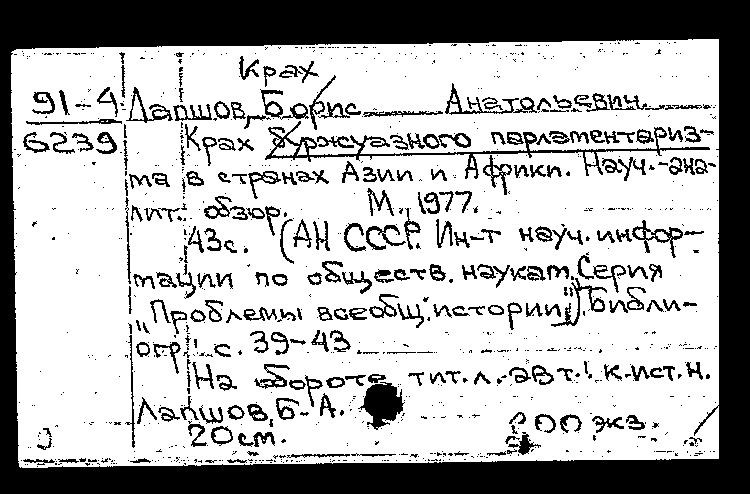 Крах
91-4 Лапшов, Борис Анатольевич.
6239 Крах буржуазного парламентариз-
ма в странах Азии и Африки. Науч.-ана-
лит. обзор. М., 1977.
43с. (АН СССР. Ин-т науч. инфор-
мации по обществ. наукам. Серия
"Проблемы всеобщ. истории"). Библи-
огр.: с. 39-43
На обороте тит. л. авт.: к. ист. н.
Лапшов, Б. А.
20 см. 200 экз.